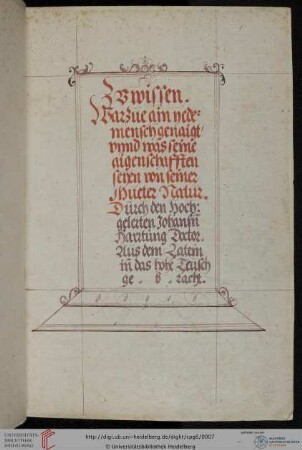 Zv wissen.
Warzue ain yeder
mensch genaigt/
vnnd was seine
aigenschafften
seyen von seiner
Mueter Natur.
Durch den Hoch:
gelerten Johannn
Harttung Doctor.
Aus dem Latein
in das hohe Teusch
ge . b . racht.
UNIVERSITÄTS-
BIBLIOTHEK
HEIDELBERG
http://digi.ub.uni-heidelberg.de/diglit/cpg6/0007
© Universitätsbibliothek Heidelberg